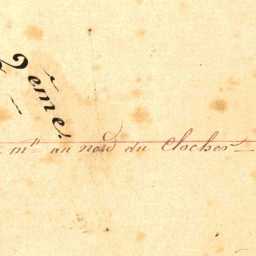 2eme
m.n au nord du Clocher